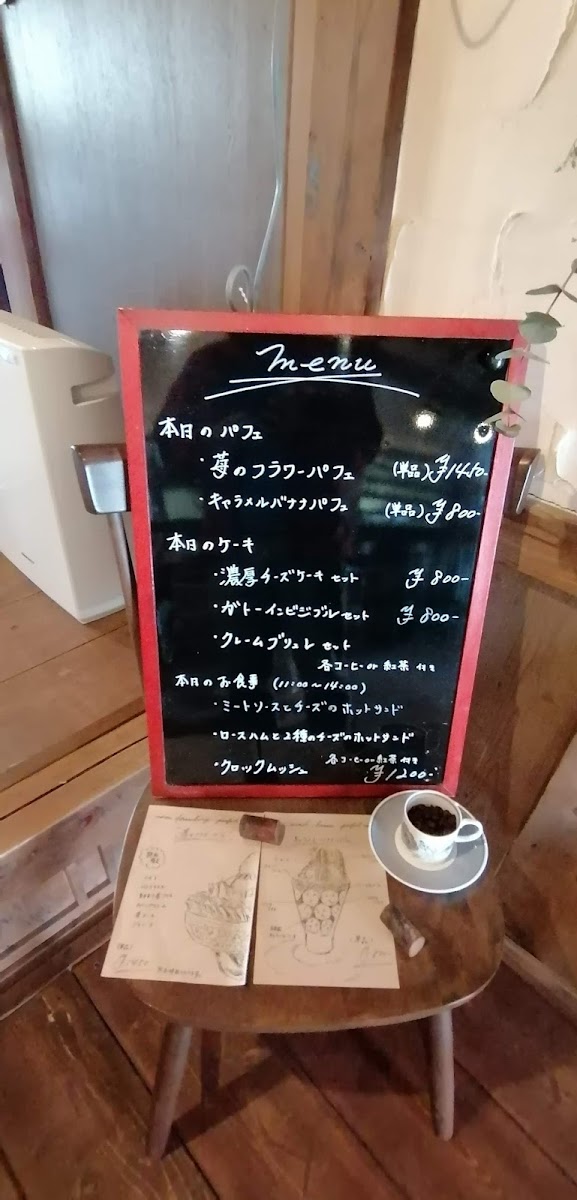 menu
本日のパフェ
・苺のフラワーパフェ (単品)¥1450-
・キャラメルバナナパフェ (単品)¥800-
本日のケーキ
・濃厚チーズケーキセット ¥800-
・ガトーインビジブルセット ¥800-
・クレームブリュレセット
各コーヒーor紅茶付き
本日のお食事 (11:00~14:00)
・ミートソースとチーズのホットサンド
・ロースハムと2種のチーズのホットサンド
各コーヒーor紅茶付き
・クロックムッシュ ¥1200-
(単品)
¥1450-